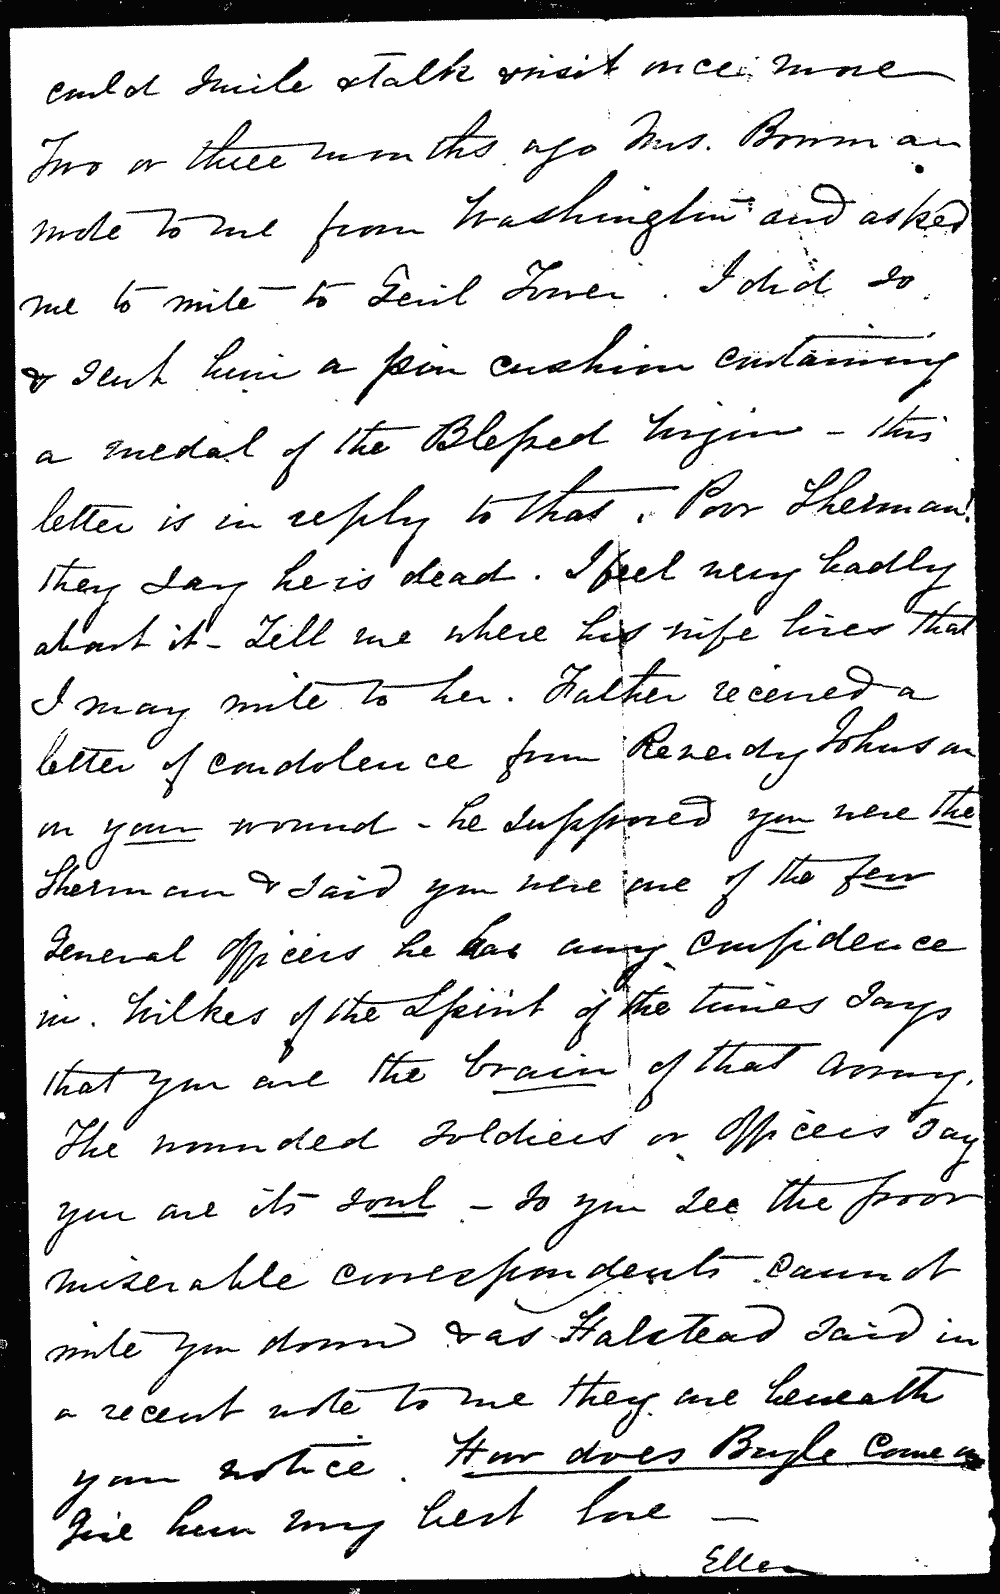 could smile & talk & visit once more
Two or three months ago Mrs. Bowman
wrote to me from Washington and asked
me to write to Genl Tower. I did so
& sent him a pin cushion containing
a medal of the Blessed Virgin - this
letter is in reply to that. Poor Sherman!
they say he is dead. I feel very badly
about it - Tell me where his wife lives that
I may write to her. Father received a
letter of condolence from Reverdy Johnson
on your wound - he supposed you were the
Sherman & said you were one of the few
General Officers he has any confidence
in. Wilkes of the Spirit of the times says
that you are the brain of that army.
The wounded soldiers or Officers say
you are its soul - So you see the poor
miserable correspondents cannot
write you down & as Halstead said in
a recent note to me they are beneath
your notice. How does Boyle come on
Give him my best love —
Ellen